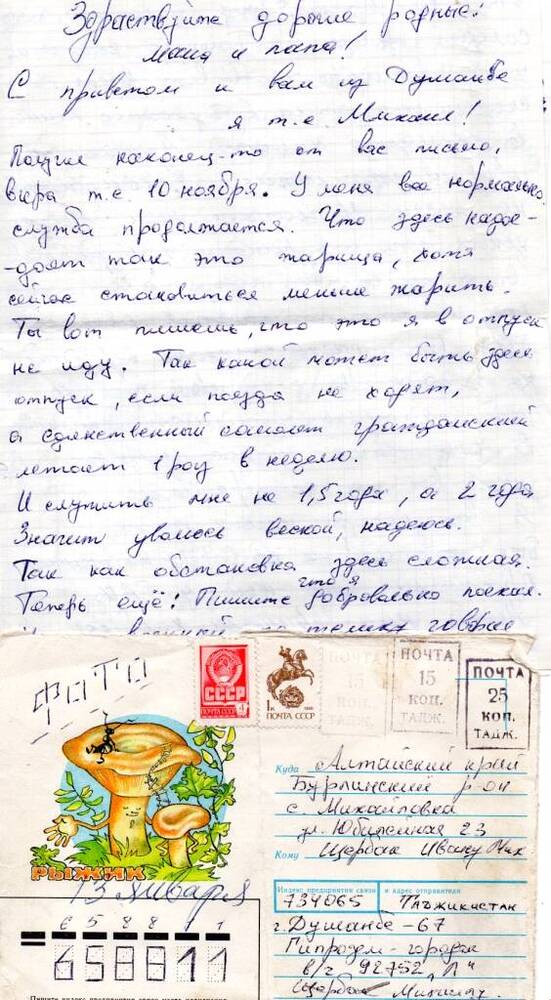 Здраствуйте дорогие родные:
мама и папа!
С приветом к вам из Душанбе
я т.е. Михаил!
Получил наконец-то от вас письмо,
вчера т.е. 10 ноября. У меня всё нормально
служба продолжается. Что здесь надое-
-дает так это жарища, хотя
сейчас становиться меньше жарить.
Ты вот пишешь, что это я в отпуск
не иду. Так какой может быть здесь
отпуск, если поезда не ходят,
а единственный самолёт гражданский
летает 1 раз в неделю.
И служить мне не 1,5 года, а 2 года
Значит уволюсь весной, надеюсь.
Так как обстановка здесь сложная.
Теперь ещё! Пишите что я добровольно поехал.
говорил
ФОТО
СССР
ПОЧТА СССР 4 К
1 К
ПОЧТА СССР
ПОЧТА
15
КОП.
ТАДЖ.
ПОЧТА
15
КОП.
ТАДЖ.
ПОЧТА
25
КОП.
ТАДЖ.
РЫЖИК
13 января
Куда Алтайский край
Бурлинский р-он
с. Михайловка
ул. Юбилейная 23
Кому Щербак Ивану Мих
Индекс предприятия связи и адрес отправителя
734065 Таджикистан
г. Душанбе - 67
Гипрозем-городок
в/ч 92752 "Л"
Щербак Михаилу
658811
658811